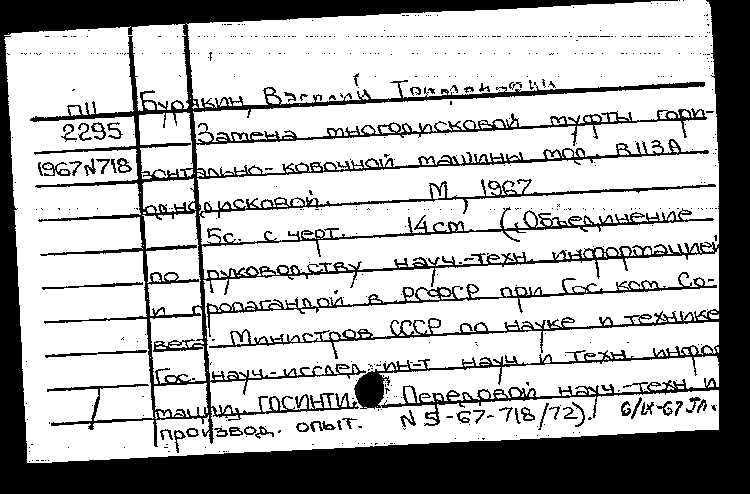 ПШ Бурякин, Василий
2295 Замена многодисковой муфты гори-
1967 N718 зонтально-ковочной машины мод. В113А
однодисковой. М., 1967.
5с. с черт. 14см. (Объединение
по руководству науч.-техн. информацией
и пропагандой в РСФСР при Гос. ком. Со-
вета Министров СССР по науке и технике
Гос. науч.-исслед. ин-т науч. и техн. инфор
мации. ГОСИНТИ. Передовой науч.-техн. и
производ. опыт. N 5-67-718/72). 6/IX-67